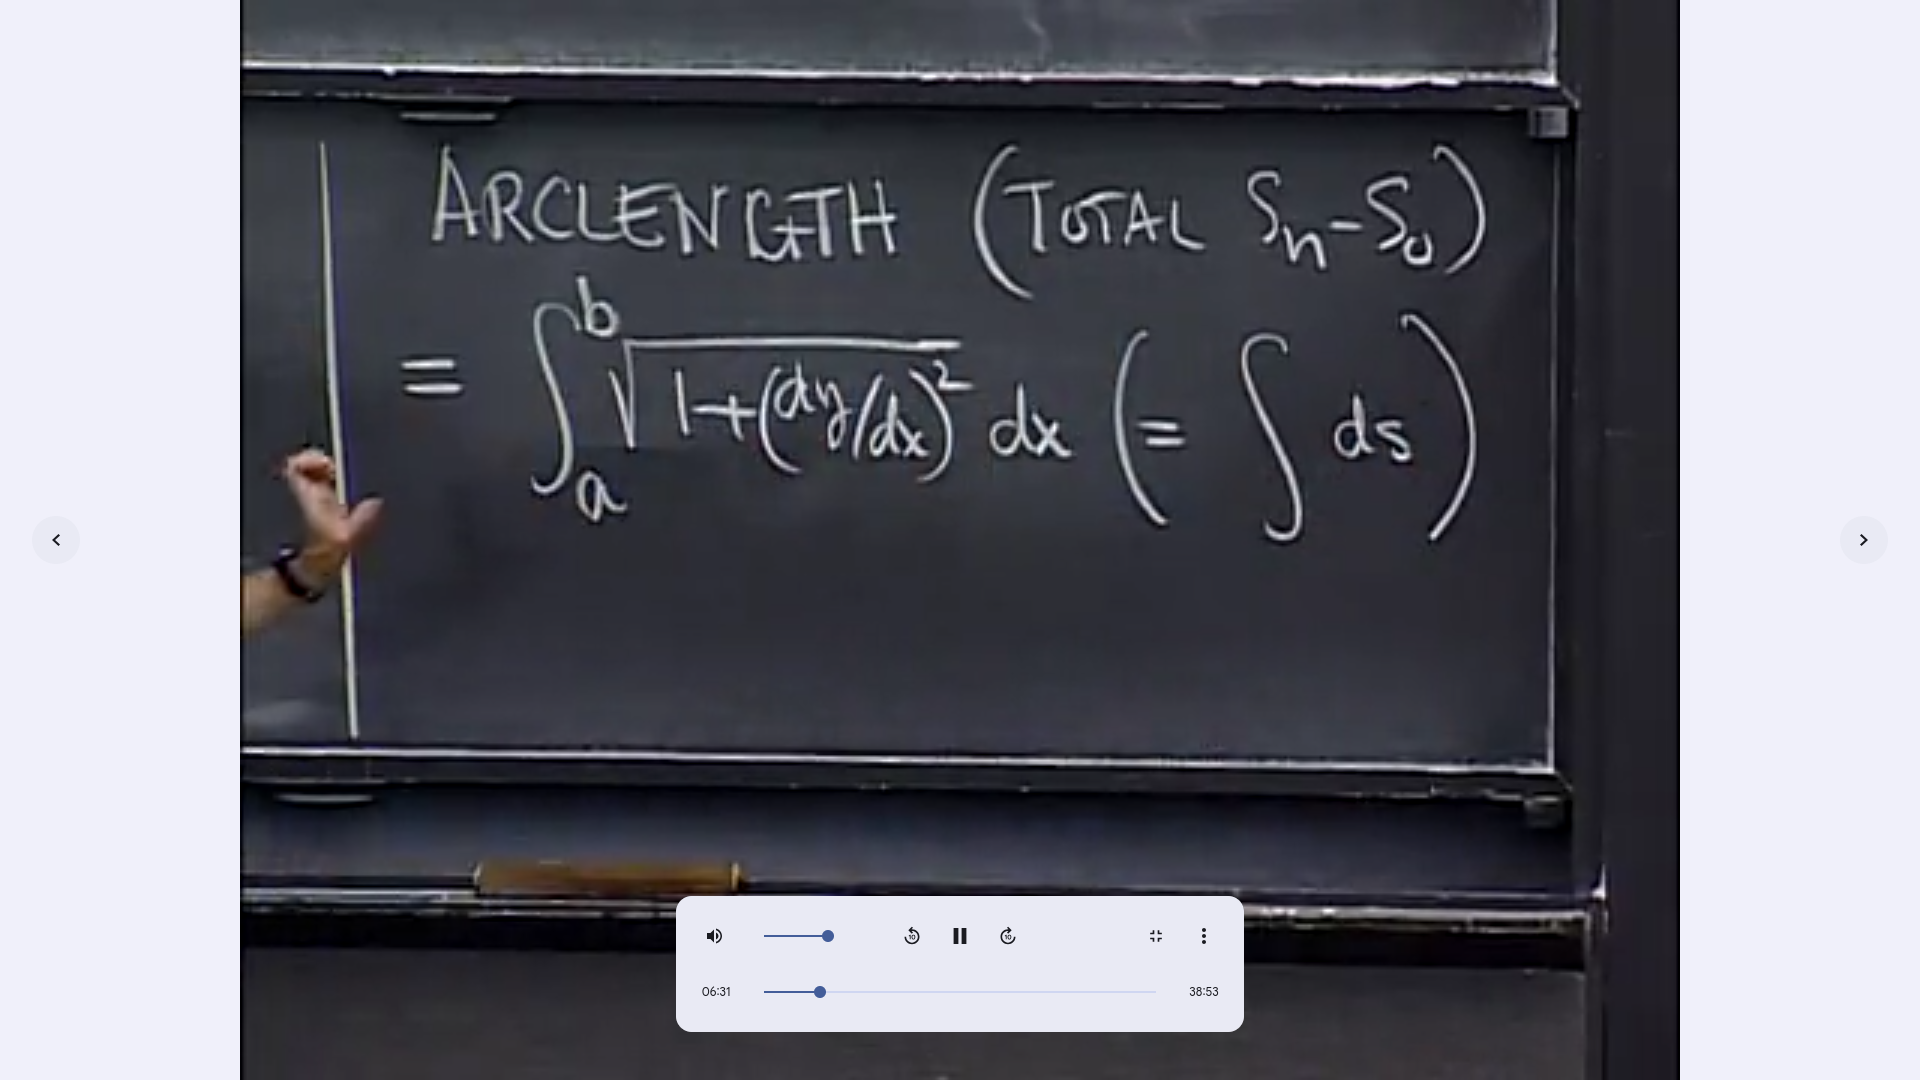 ARCLENGTH (TOTAL Sₙ-S₀)
= ∫ₐᵇ √(1+(dy/dx)²) dx (= ∫ ds)
10
10
06:31
38:53